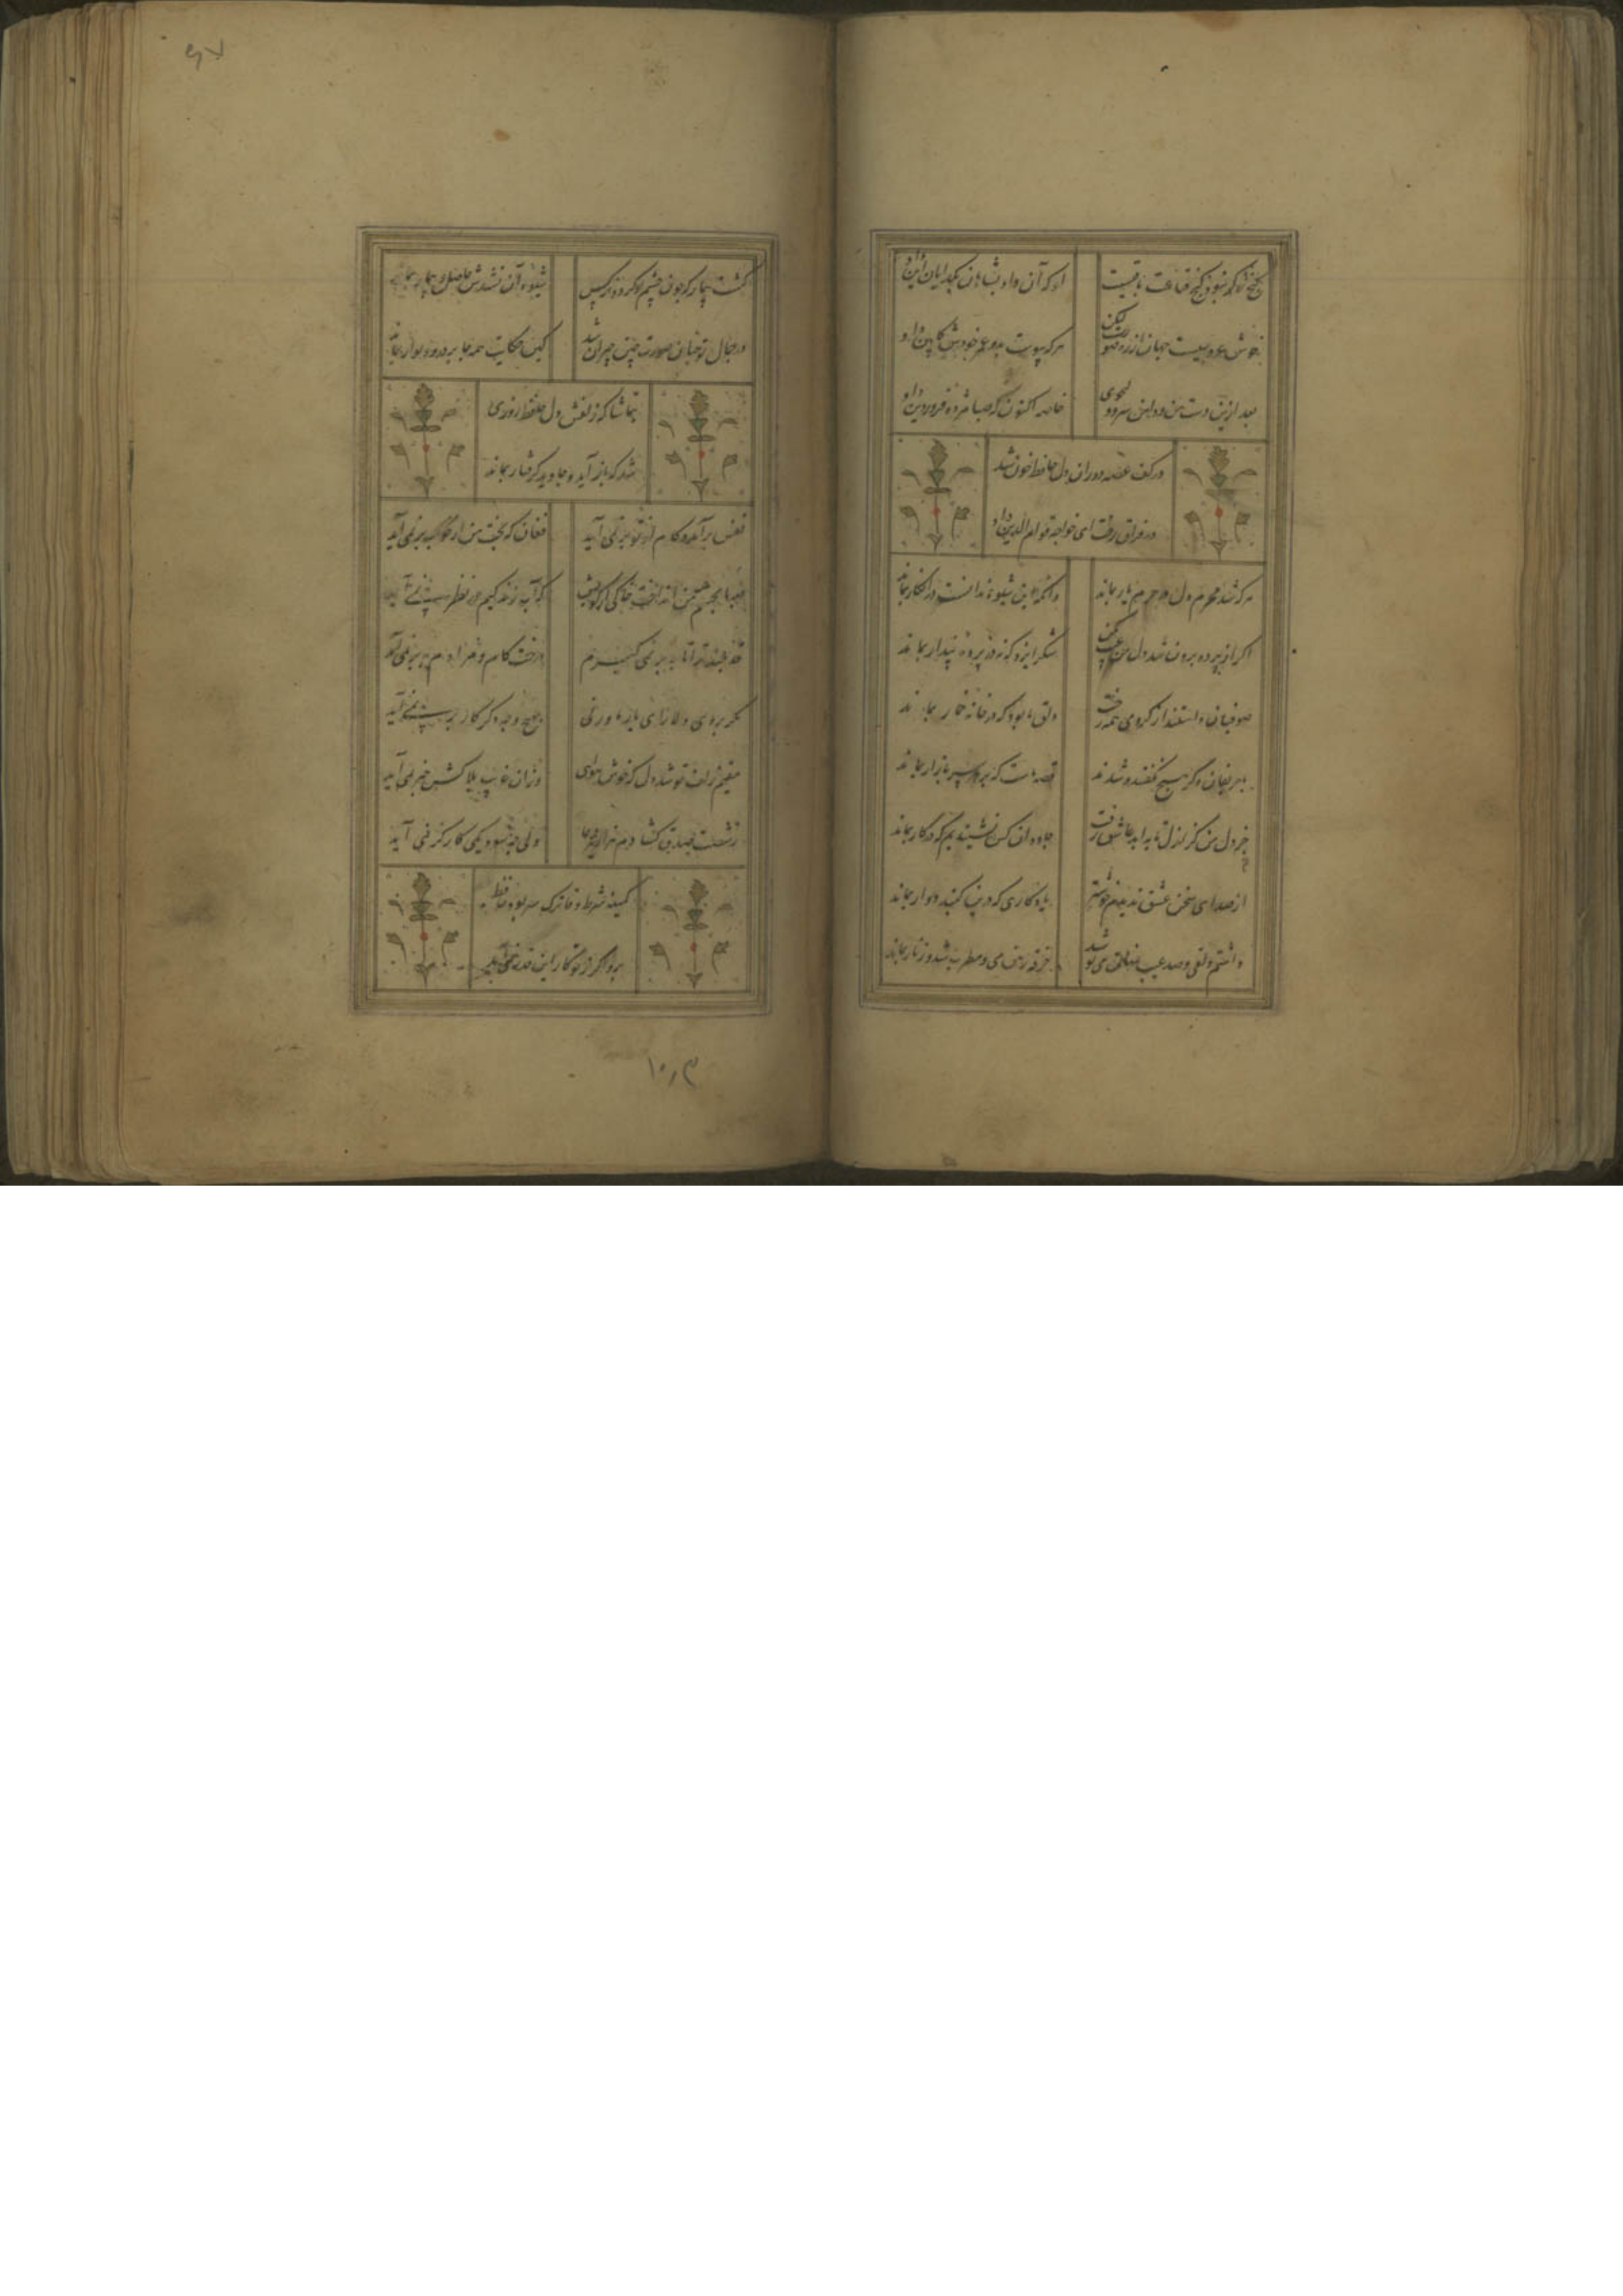 گنج زر گر نبود گنج قناعت باقیست
آنکه آن داد بشاهان بگدایان این داد
خوش عروسیست جهان از ره صورت لیکن
هرکه پیوست بدو عمر خودش کابین داد
بعد ازین دست من و دامن سرو و لب جوی
خاصه اکنون که صبا مژده فروردین داد
در کف غصه دوران دل حافظ خون شد
در فراق رخت ای خواجه قوام الدین داد
هرکه شد محرم دل در حرم یار بماند
وانکه این شیوه ندانست در انکار بماند
اگر از پرده برون شد دل من عیب مکن
شکر ایزد که نه در پرده پندار بماند
صوفیان واستدند از گرو می همه رخت
دلق ما بود که در خانه خمار بماند
قصه ماست که بر هر سر بازار بماند
جز دل من کز ازل تا به ابد عاشق رفت
جاودان کس نشنیدیم که در کار بماند
از صدای سخن عشق ندیدم خوشتر
یادگاری که درین گنبد دوار بماند
داشتم دلقی و صد عیب نهان می پوشید
خرقه رهن می و مطرب شد و زنار بماند
۹۷
گشت بیمار که چون چشم تو گردد نرگس
شیوه آن نشدش حاصل و بیمار بماند
بر جمال تو چنان صورت چین حیران شد
کین حکایت همه جا بر در و دیوار بماند
بتماشاگه زلفش دل حافظ روزی
شد که باز آید و جاوید گرفتار بماند
نفس برآمد و کام از تو بر نمی آید
فغان که بخت من از خواب بر نمی آید
صبا بچشم من انداخت خاکی از کویش
که آب زندگیم در نظر نمی آید
قد بلند ترا تا ببر نمی گیرم
درخت کام و مرادم ببر نمی آید
مگر بروی دلارای یار ما ورنی
بهیچ وجه دگر کار بر نمی آید
مقیم زلف تو شد دل که خوش سوادی
وزان غریب بلاکش خبر نمی آید
ز شست صدق گشادم هزار تیر دعا
ولی چه سود یکی کارگر نمی آید
کمینه شرط وفا ترک سر بود حافظ
برو اگر ز تو کار این قدر نمی آید
۱۰۳